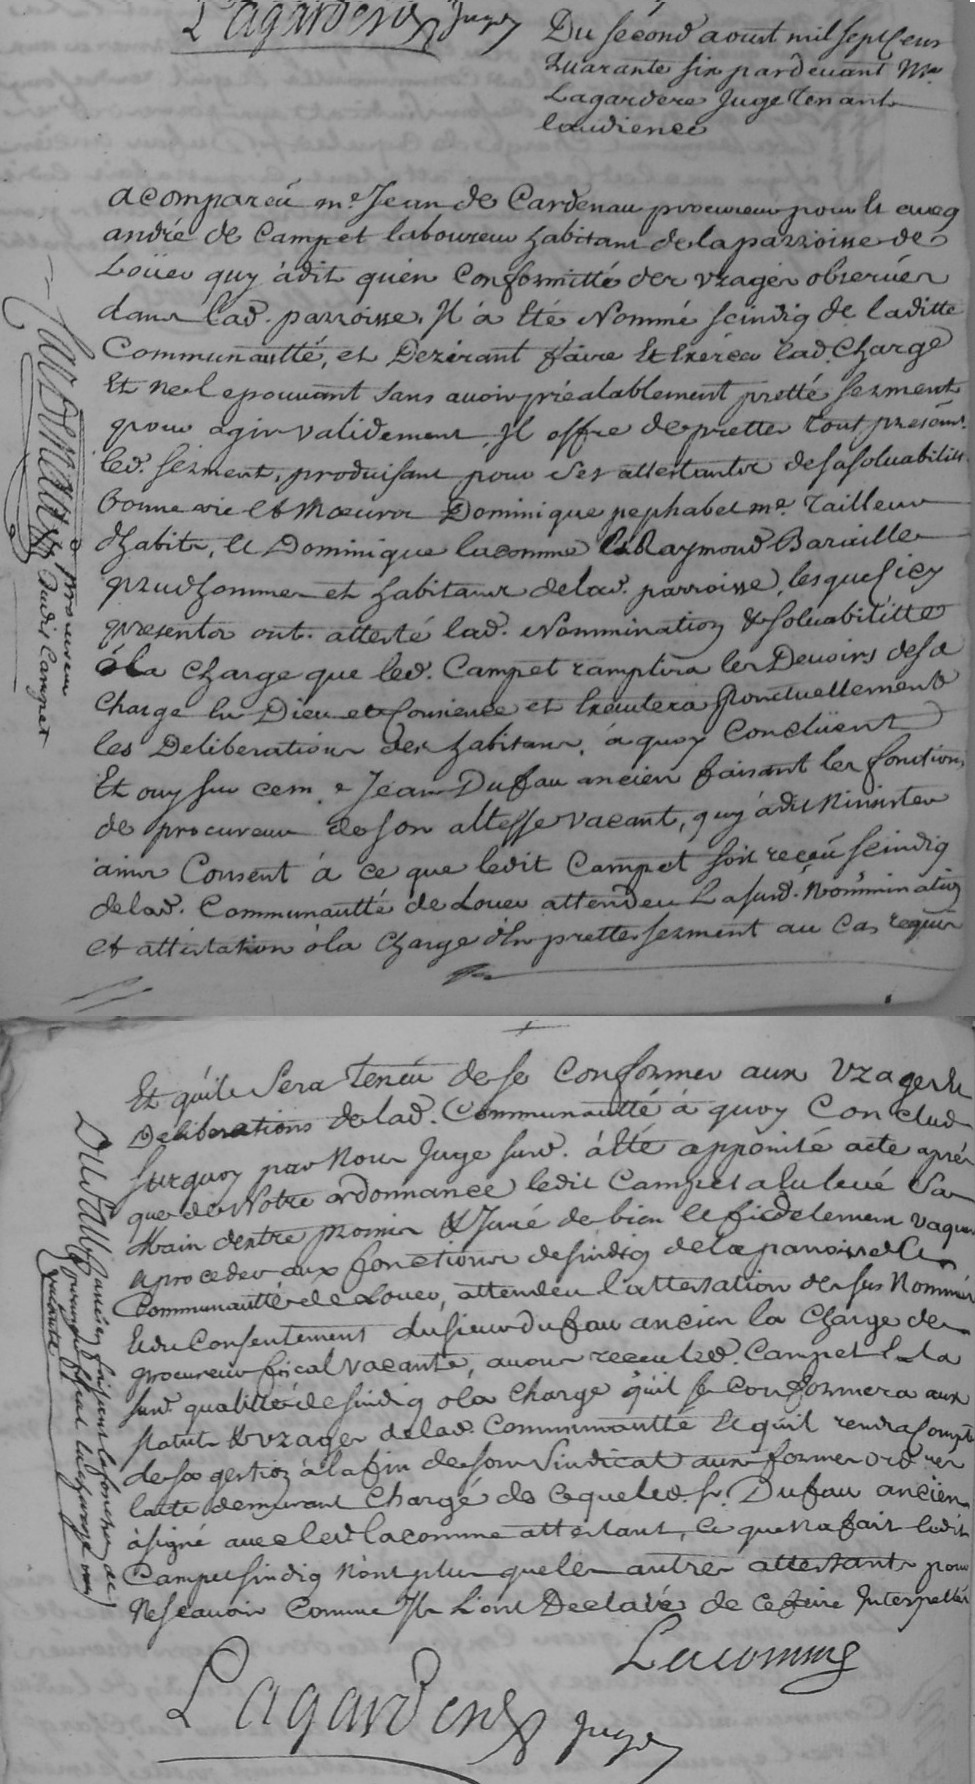 Lagardere Juge
Du second aoust mil sept cens
quarante six pardevant Mr
Lagardere Juge tenant
laudience
a comparcû me Jean de Cardenau procureur pour
andré de Campet laboureur habitant de la parroisse de
Loüer quy à dit quén Conformitté des uzages obserués
dans lad. parroisse, Il à êté Nommé scindiq de laditte
Communautté, et Dezirant faire Et Exercer lad. Charge
Et ne le pouuant sans auoir préalablement pretté serment
pour agir validement, Il offre de pretter tout presém.t
led. serment, produisant pour ses attestants de sa soluabilitté
bonne vie et Mœurs Dominique pephabet me Tailleur
dhabits, et Dominique lacomme et Raymond Barailler
prudhommes et habitans de lad. parroisse, lesquels icy
presents ont attesté lad. Nommination & soluabilitté
à la charge que led. Campet ramplira les Deuoirs de sa
Charge En Dieu et Consience et Exécutera ponctuellement
les Deliberations des habitans, à quoy Concluënt
Et ouy sur ce me Jean Dufau ancien faisant les fonctions
de procureur de son altesse vacant, quy à dit
Consent à ce que ledit Campet soit reçeû scindiq
de lad. Communautté de Louer attendeu La sud. Nomination
et attestation à la charge d'En pretter serment au Cas requis
Cardenau procureur
dudit Campet
Et quil Sera Teneû de se Conformer aux Uzages Et
Deliberations de lad. Communautté à quoy Conclud
Sur quoy par Nous Juge susd. à Eté appointé acte aprés
que de Notre ordonnance ledit Campet a lu leué Sa
Main dextre promis & Juré de bien et fidelement vaquer
a proceder aux fonctions de sindiq de la parroisse et
Communautté de Louer, attendeu l'attestation des sus Nommés
Et du Consentement du sieur Dufau ancien la Charge de
procureur fiscal vacante, auons receu led. Campet En la
susd. qualitté de sindiq à la charge quil se Conformera aux
statuts & uzages de lad. Communautté Et quil rendra Compte
de sa gestion à la fin de son Sindicat aux formes
lacte demurant Chargé de ce que led. sr. Dufau ancien
à signé auec led lacomme attestant, Ce que Na fait ledit
Campet sindiq Nont plus que les autres attestants pour
Ne Scauoir Comme Ils L'ont Declaré de ce faire Interpellés
Dufau ancien faisant la fonction de
procureur fiscal la charge
vacante
Lacomme
Lagardere Juge